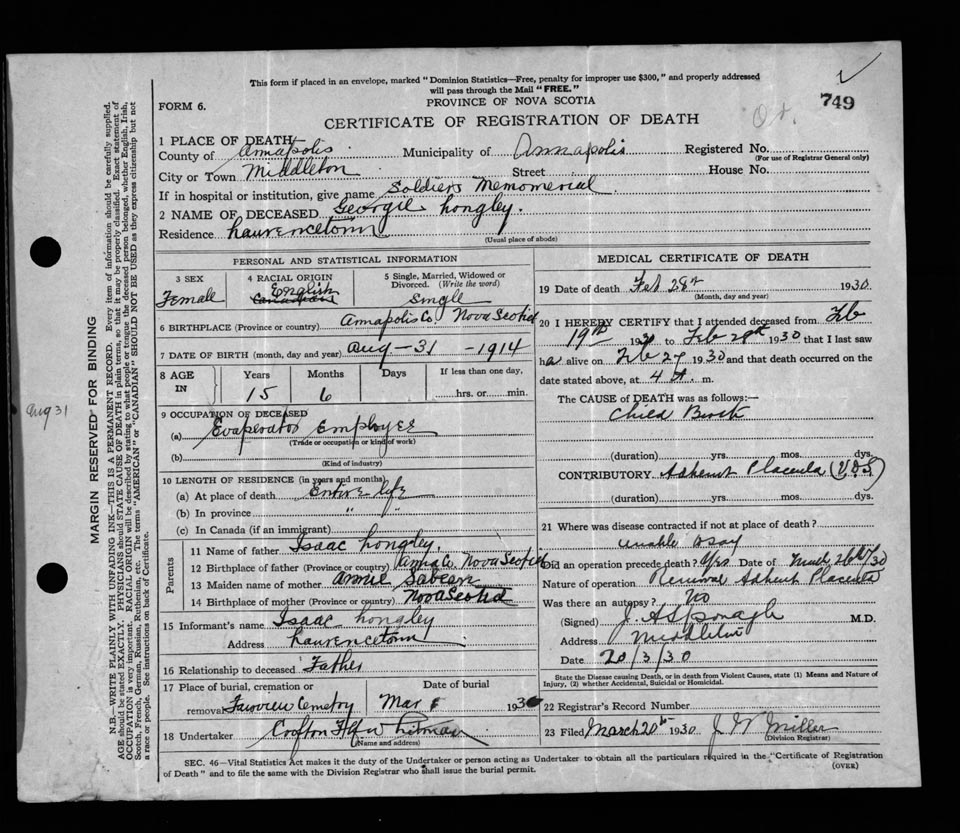 This form if placed in an envelope, marked "Dominion Statistics—Free, penalty for improper use $300," and properly addressed
will pass through the Mail "FREE."
749
FORM 6.
PROVINCE OF NOVA SCOTIA
CERTIFICATE OF REGISTRATION OF DEATH
1 PLACE OF DEATH
County of Annapolis Municipality of Annapolis Registered No.
(For use of Registrar General only)
City or Town Middleton Street House No.
If in hospital or institution, give name Soldiers Memomerial
2 NAME OF DECEASED Georgie Longley.
Residence Laurencetown
(Usual place of abode)
PERSONAL AND STATISTICAL INFORMATION
3 SEX Female
4 RACIAL ORIGIN English Canadians
5 Single, Married, Widowed or Divorced. (Write the word) Single
6 BIRTHPLACE (Province or country) Annapolis Co. Nova Scotia
7 DATE OF BIRTH (month, day and year) Aug-31 -1914
8 AGE IN Years 15 Months 6 Days If less than one day, hrs. or min.
9 OCCUPATION OF DECEASED
(a) Evaporator Employee
(Trade or occupation or kind of work)
(b)
(Kind of industry)
10 LENGTH OF RESIDENCE (in years and months)
(a) At place of death Entire life
(b) In province " "
(c) In Canada (if an immigrant)
Parents
11 Name of father Isaac Longley.
12 Birthplace of father (Province or country) Anna Co. Nova Scotia
13 Maiden name of mother Annie Sabean
14 Birthplace of mother (Province or country) Nova Scotia
15 Informant's name Isaac Longley
Address Laurencetown
16 Relationship to deceased Father
17 Place of burial, cremation or removal Fairview Cemetry
Date of burial Mar 1930
18 Undertaker Crofton
(Name and address)
MEDICAL CERTIFICATE OF DEATH
19 Date of death Feb 28th 1930.
(Month, day and year)
20 I HEREBY CERTIFY that I attended deceased from Feb
19th 1930 to Feb 28th 1930 that I last saw
h alive on Feb 27 1930 and that death occurred on the
date stated above, at 4 A. m.
The CAUSE of DEATH was as follows:—
Child Birth
(duration) yrs. mos. dys.
CONTRIBUTORY Adherent Placenta
(duration) yrs. mos. dys.
21 Where was disease contracted if not at place of death?
unable to say
Did an operation precede death? Yes Date of
Nature of operation Removal Adherent Placenta
Was there an autopsy? No
(Signed) M.D.
Address Middleton
Date 20/3/30
State the Disease causing Death, or in death from Violent Causes, state (1) Means and Nature of
Injury, (2) whether Accidental, Suicidal or Homicidal.
22 Registrar's Record Number
23 Filed March 20th 1930. J W Miller
(Division Registrar)
SEC. 46—Vital Statistics Act makes it the duty of the Undertaker or person acting as Undertaker to obtain all the particulars required in the "Certificate of Registration
of Death" and to file the same with the Division Registrar who shall issue the burial permit.
(OVER)
MARGIN RESERVED FOR BINDING
N.B.—WRITE PLAINLY WITH UNFADING INK—THIS IS A PERMANENT RECORD. Every item of information should be carefully supplied.
AGE should be stated EXACTLY. PHYSICIANS should STATE CAUSE OF DEATH in plain terms, so that it may be properly classified. Exact statement of
OCCUPATION is very important. RACIAL ORIGIN will be described by stating to what people or tongue the deceased person belonged, whether English, Irish,
Scotch, French, German, Russian, Ruthenian, etc. The terms "AMERICAN" or "CANADIAN" SHOULD NOT BE USED as they express citizenship but not
a race or people. See instructions on back of Certificate.
Aug 31